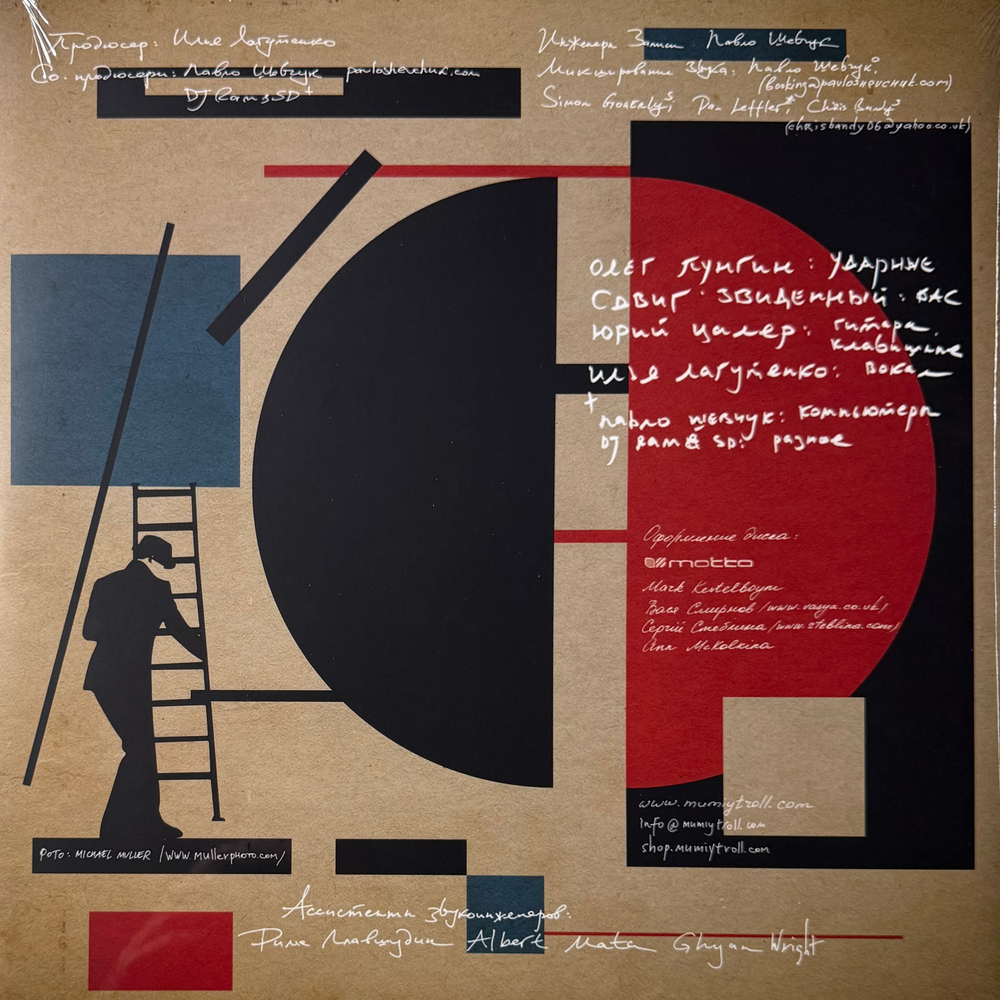 Продюсер: Илья Лагутенко
Со. продюсеры: Павло Шевчук pavloshevchuk.com
DJ Ram & SD+
Инженеры Записи Павло Шевчук
Микширование Звука: Павло Шевчук
(booking@pavloshevchuk.com)
Simon Gogerly, Dan Leffler, Chris Bandy
(chrisbandy06@yahoo.co.uk)
Олег Пунгин: ударные
Сдвиг Звиденный: бас
Юрий Цалер: гитара,
клавишные
Илья Лагутенко: вокал
+
Павло Шевчук: компьютеры
DJ Ram & SD: разное
Оформление диска:
motto
Mark Kestelboym
Вася Смирнов /www.vasya.co.uk/
Сергій Стебліна /www.steblina.com/
Ann McKolkina
www.mumiytroll.com
Info@mumiytroll.com
shop.mumiytroll.com
Фото: Michael Muller /www.mullerphoto.com/
Ассистенты звукоинженеров:
Albert Mata Ghyan Wright